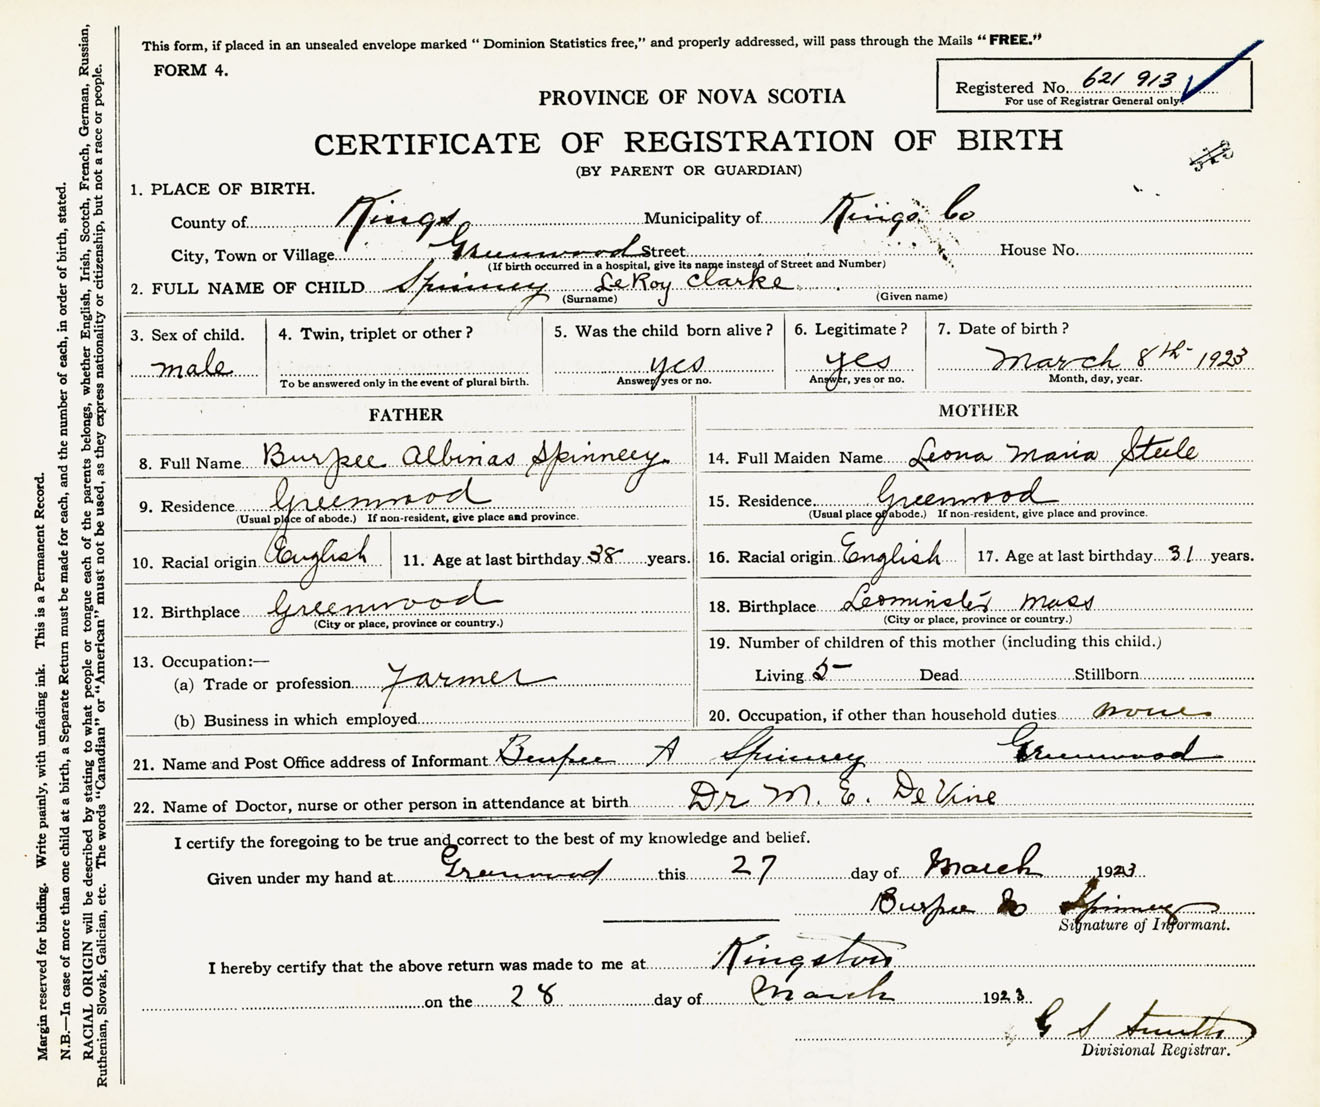 This form, if placed in an unsealed envelope marked " Dominion Statistics free," and properly addressed, will pass through the Mails " FREE."
FORM 4.
Registered No. 621 913
For use of Registrar General only
PROVINCE OF NOVA SCOTIA
CERTIFICATE OF REGISTRATION OF BIRTH
(BY PARENT OR GUARDIAN)
1. PLACE OF BIRTH.
County of Kings Municipality of Kings Co
City, Town or Village Greenwood Street House No.
(If birth occurred in a hospital, give its name instead of Street and Number)
2. FULL NAME OF CHILD Spinney LeRoy Clarke
(Surname) (Given name)
3. Sex of child. 4. Twin, triplet or other ? 5. Was the child born alive ? 6. Legitimate ? 7. Date of birth ?
male yes yes March 8th 1923
To be answered only in the event of plural birth. Answer, yes or no. Answer, yes or no. Month, day, year.
FATHER
8. Full Name Burpee Albinas Spinney.
9. Residence Greenwood
(Usual place of abode.) If non-resident, give place and province.
10. Racial origin English 11. Age at last birthday 38 years.
12. Birthplace Greenwood
(City or place, province or country.)
13. Occupation:—
(a) Trade or profession Farmer
(b) Business in which employed
MOTHER
14. Full Maiden Name Leona Maria Steele
15. Residence Greenwood
(Usual place of abode.) If non-resident, give place and province.
16. Racial origin English 17. Age at last birthday 31 years.
18. Birthplace Leominster Mass
(City or place, province or country.)
19. Number of children of this mother (including this child.)
Living 5 Dead Stillborn
20. Occupation, if other than household duties none
21. Name and Post Office address of Informant Burpee A Spinney Greenwood
22. Name of Doctor, nurse or other person in attendance at birth Dr M. E. DeVine
I certify the foregoing to be true and correct to the best of my knowledge and belief.
Given under my hand at Greenwood this 27 day of March 1923
Burpee Spinney
Signature of Informant.
I hereby certify that the above return was made to me at Kingston
on the 28 day of March 1923.
G S Smith
Divisional Registrar.
Margin reserved for binding. Write plainly, with unfading ink. This is a Permanent Record.
N.B.—In case of more than one child at a birth, a Separate Return must be made for each, and the number of each, in order of birth, stated.
RACIAL ORIGIN will be described by stating to what people or tongue each of the parents belongs, whether English, Irish, Scotch, French, German, Russian,
Ruthenian, Slovak, Galician, etc. The words "Canadian" or "American" must not be used, as they express nationality or citizenship, but not a race or people.